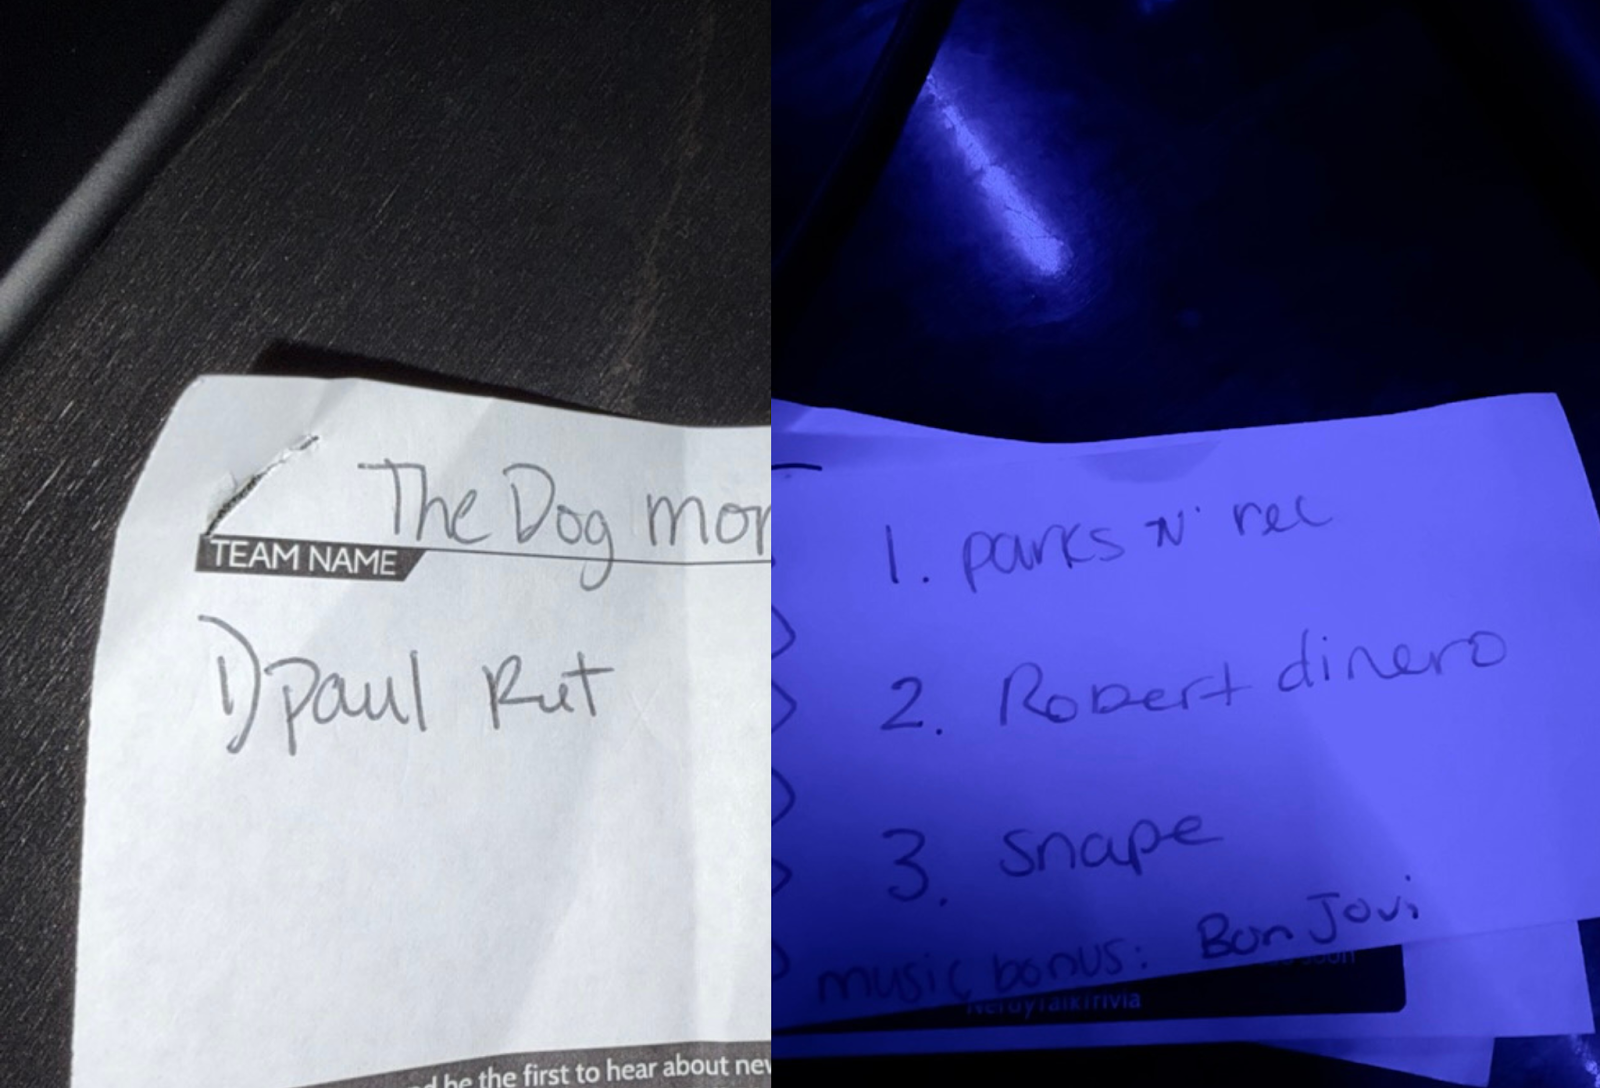 The Dog mor
TEAM NAME
1) paul Rut
d be the first to hear about nev
1. parks N' rec
2. Robert dinero
3. snape
music bonus: Bon Jovi
NerdyTalkTrivia